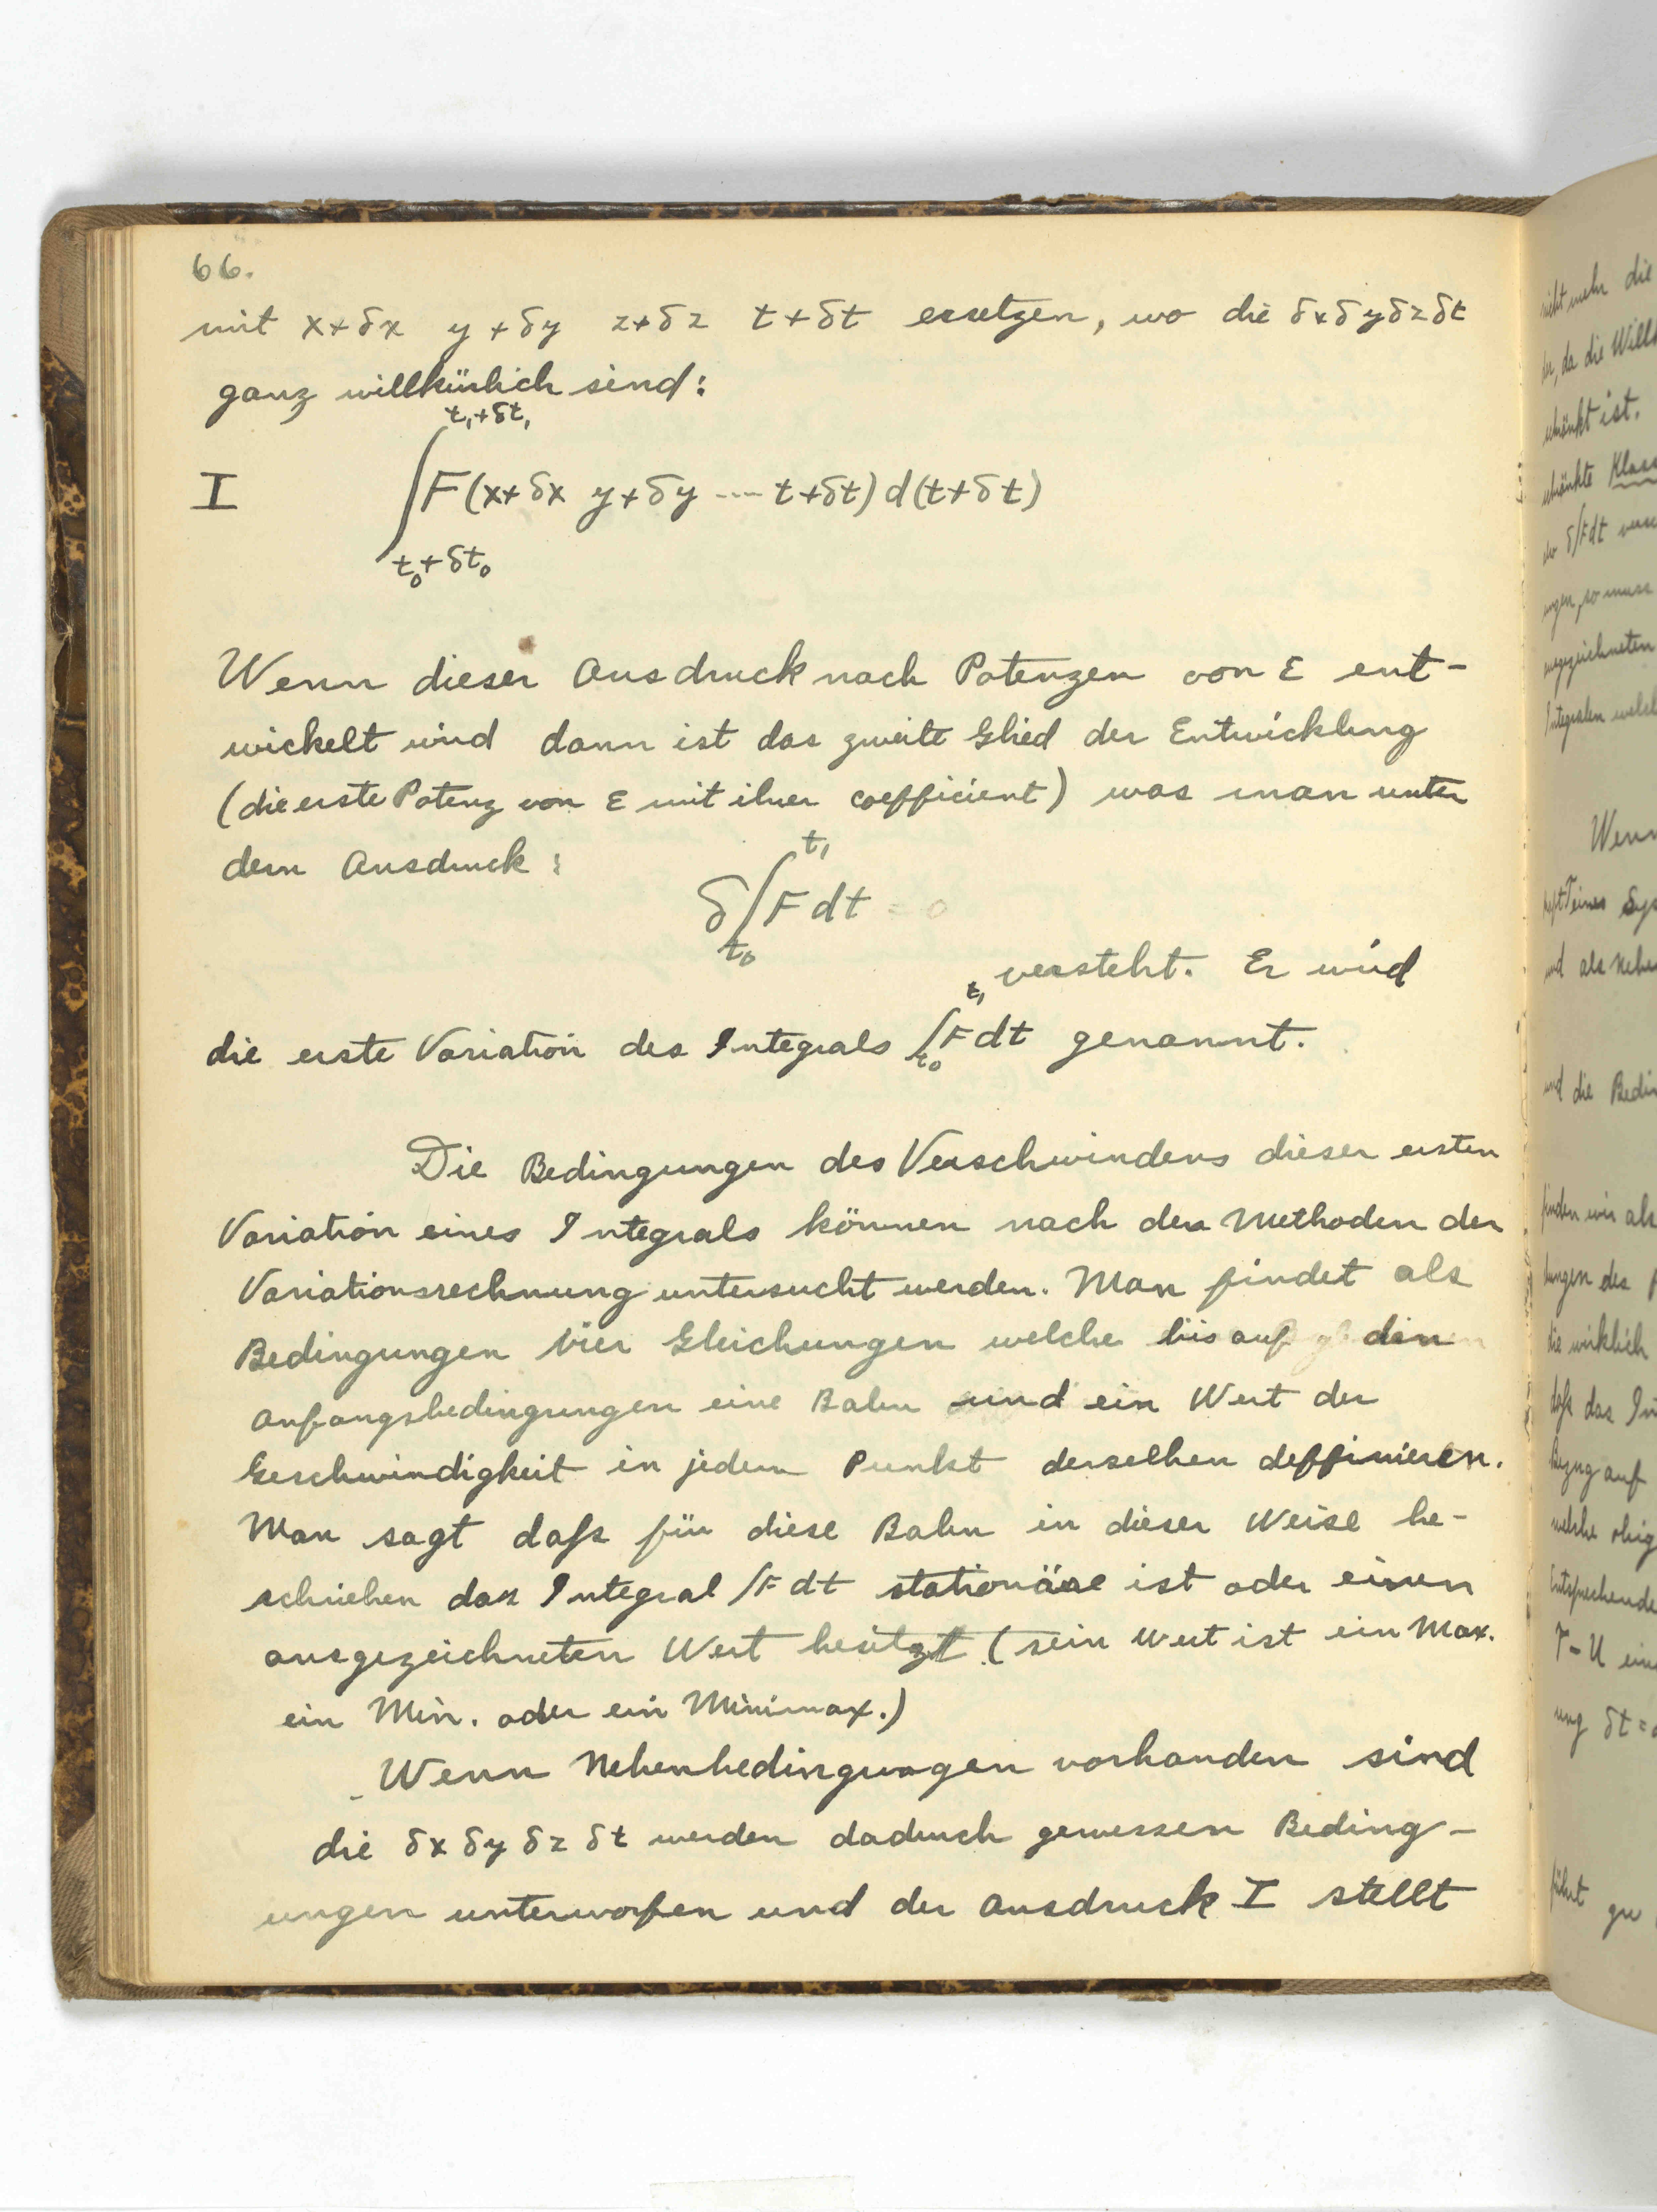 66.
mit x+δx y+δy z+δz t+δt ersetzen, wo die δxδyδzδt
ganz willkürlich sind:
t₁+δt₁
I ∫F(x+δx y+δy ---- t+δt) d(t+δt)
t₀+δt₀
Wenn dieser Ausdruck nach Potenzen von ε ent-
wickelt wird dann ist das zweite Glied der Entwicklung
(die erste Potenz von ε mit ihrer coefficient) was man unter
dem Ausdruck:
t₁
δ∫F dt = 0
t₀
versteht. Er wird
t₁
die erste Variation des Integrals ∫F dt genannt.
t₀
Die Bedingungen des Verschwindens dieser ersten
Variation eines Integrals können nach den Methoden der
Variationsrechnung untersucht werden. Man findet als
Bedingungen vier Gleichungen welche bis auf den
Anfangsbedingungen eine Bahn und ein Wert der
Geschwindigkeit in jedem Punkt derselben deffinieren.
Man sagt daſs für diese Bahn in dieser Weise be-
schrieben das Integral ∫F dt stationäre ist oder einen
ausgezeichneten Wert besitzt (sein Wert ist ein Max.
ein Min. oder ein Minimax.)
Wenn Nebenbedingungen vorhanden sind
die δx δy δz δt werden dadurch gewessen Beding-
ungen unterworfen und der Ausdruck I stellt
nicht mehr die
da die
ist.
δ∫Fdt
so muss
Wenn
und als
und die
finden wir als
die wirklich
daſs das
auf
welche
T-U
δt=
führt